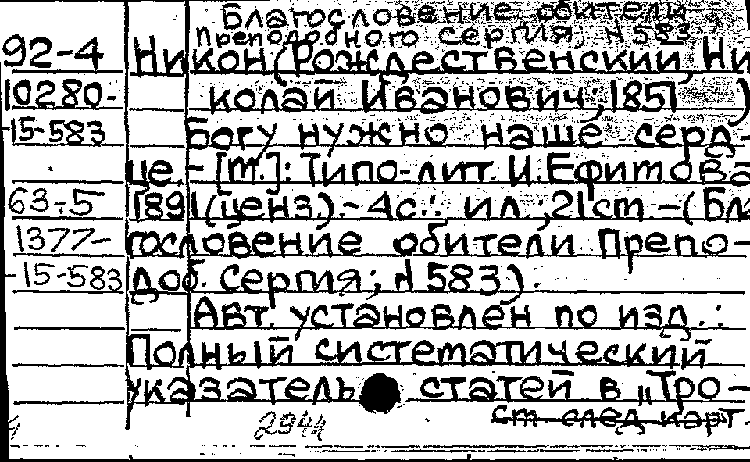 Благословение обители
Преподобного Сергия; N 583
92-4 Никон (Рождественский, Ни-
10280- колай Иванович; 1851 )
-15-583 Богу нужно наше серд-
це. - [М.]: Типо-лит. И. Ефимова
63-5 1891 (ценз.). - 4с.: ил.; 21см - (Бла
1377- гословение обители Препо-
-15-583 доб. Сергия; N 583).
Авт. установлен по изд.:
Полный систематический
указатель статей в „Тро-
См след карт
2944